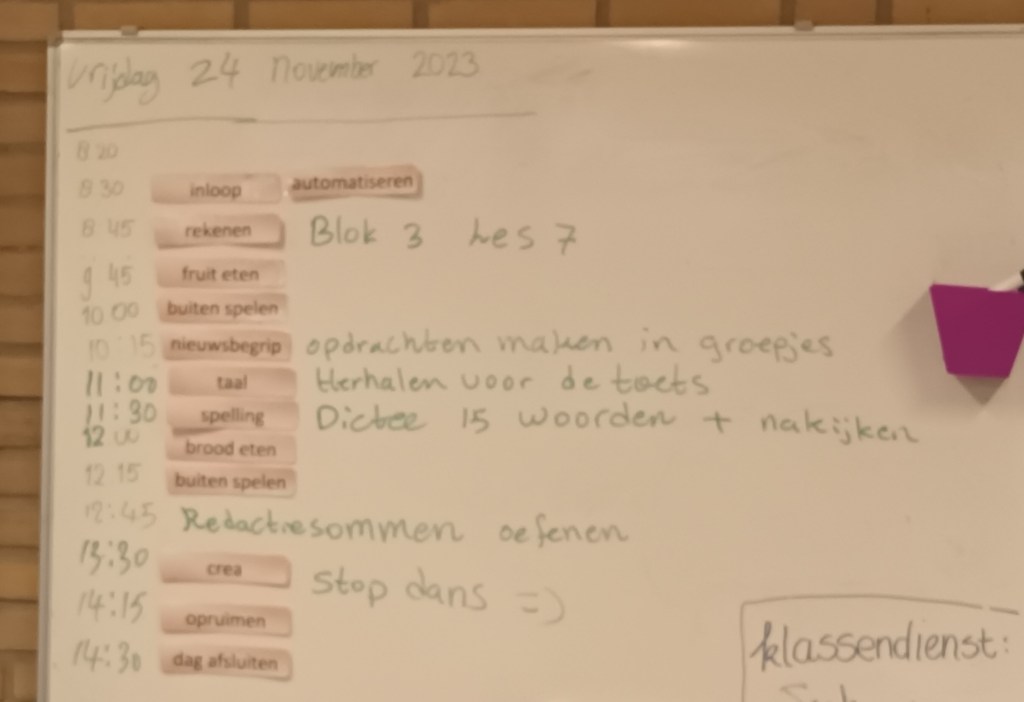 vrijdag 24 November 2023
8 20
8 30 inloop automatiseren
8 45 rekenen Blok 3 Les 7
9 45 fruit eten
10 00 buiten spelen
10:15 nieuwsbegrip opdrachten maken in groepjes
11:00 taal Herhalen voor de toets
11:30 spelling Dictee 15 woorden + nakijken
12 00 brood eten
12 15 buiten spelen
12:45 Redactiesommen oefenen
13:30 crea Stop dans =)
14:15 opruimen
14:30 dag afsluiten
klassendienst: